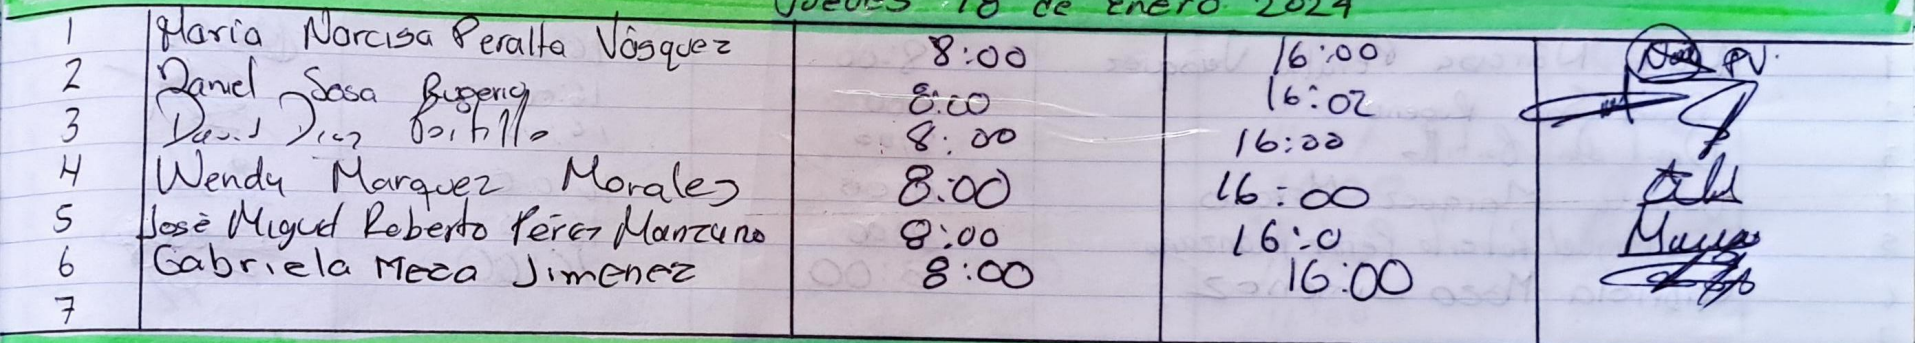 Jueves 18 de enero 2024
1 María Narcisa Peralta Vásquez 8:00 16:00 PV.
2 Daniel Sosa Eugenio 8:00 16:02
3 David Diaz Portillo 8:00 16:00
4 Wendy Marquez Morales 8:00 16:00
5 José Miguel Roberto Pérez Manzano 8:00 16:0
6 Gabriela Meza Jimenez 8:00 16:00
7